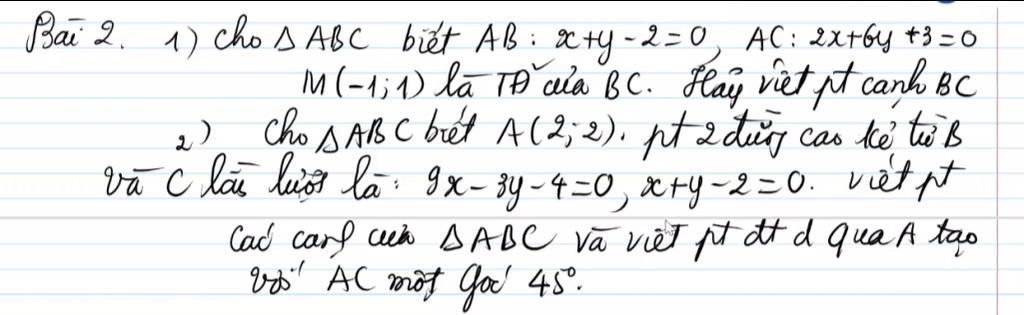 Bài 2. 1) Cho Δ ABC biết AB : x+y-2=0, AC: 2x+6y+3=0
M(-1;1) là TĐ của BC. Hãy viết pt cạnh BC
2) Cho Δ ABC biết A(2;2). pt 2 đường cao kẻ từ B
và C lần lượt là: 9x-3y-4=0, x+y-2=0. viết pt
các cạnh của Δ ABC và viết pt đt d qua A tạo
với AC một góc 45°.